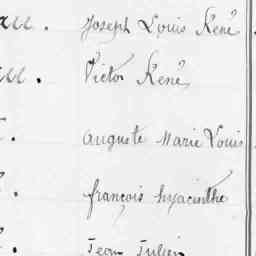 Joseph Louis René
Victor René
Auguste Marie Louis
françois hyacinthe
Jean Julien